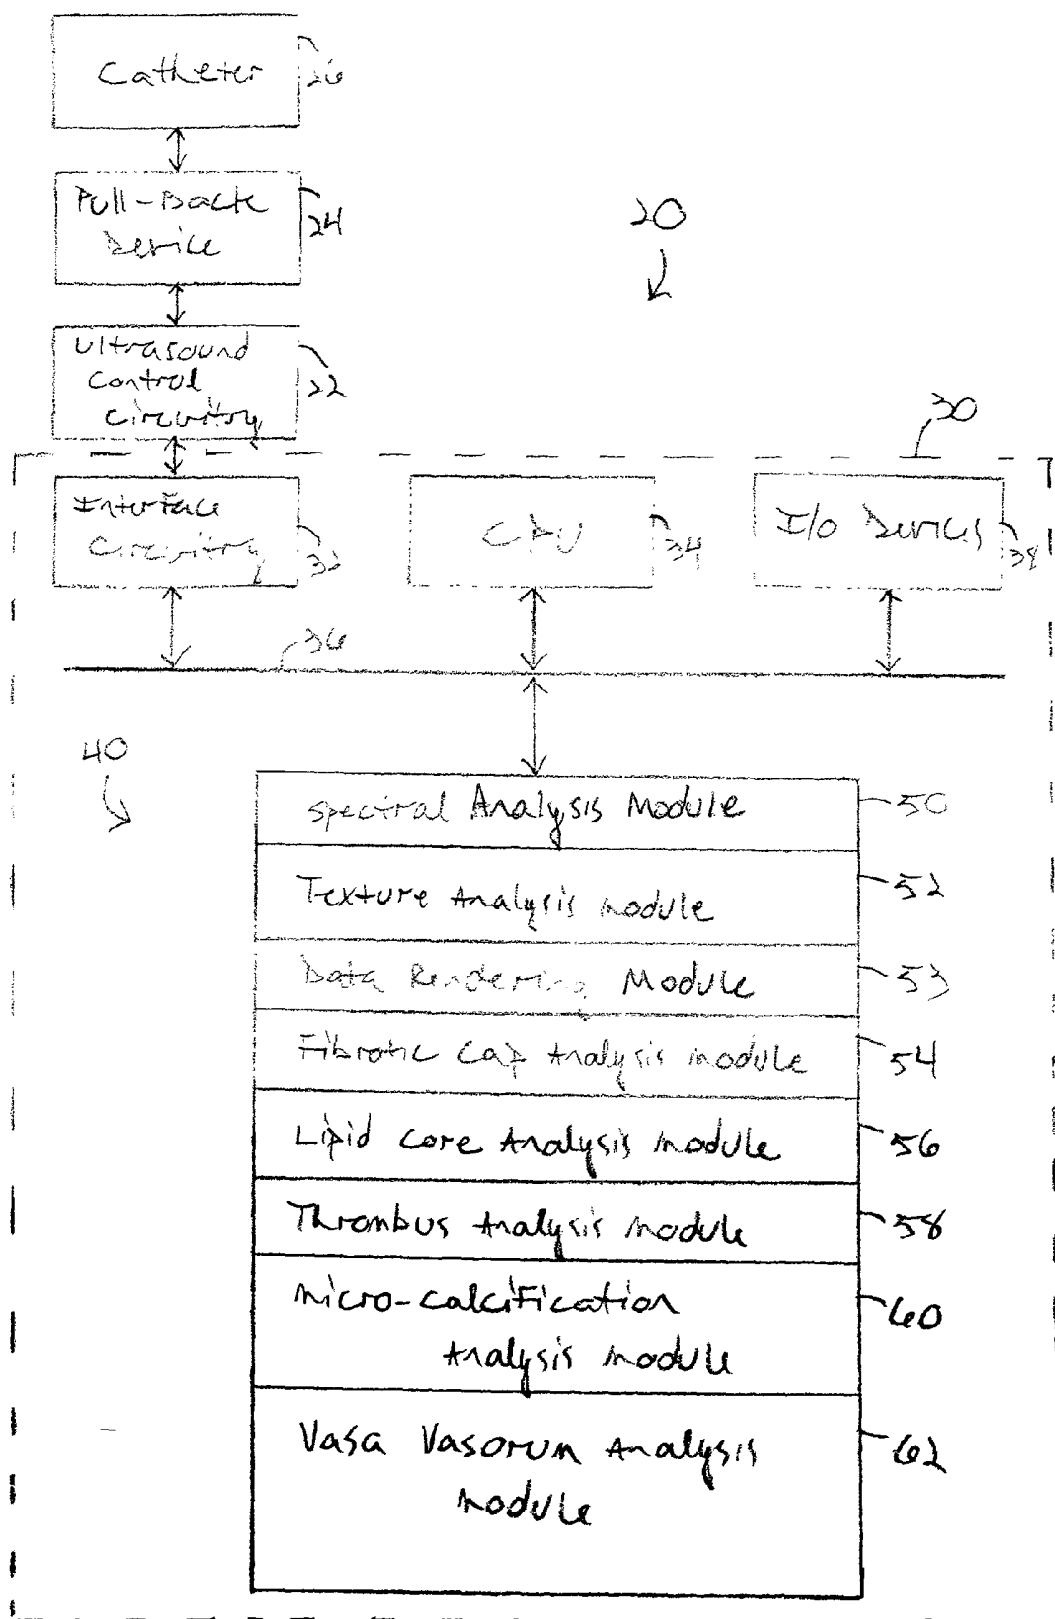 Catheter 26
Pull-Back
Device 24
20
Ultrasound
Control
Circuitry 22
30
Interface
Circuitry 32
CPU 34
I/O Devices 38
36
40
Spectral Analysis Module 50
Texture Analysis Module 52
Data Rendering Module 53
Fibrotic Cap Analysis Module 54
Lipid Core Analysis Module 56
Thrombus Analysis Module 58
Micro-calcification 60
Analysis Module
Vasa Vasorum Analysis 62
Module